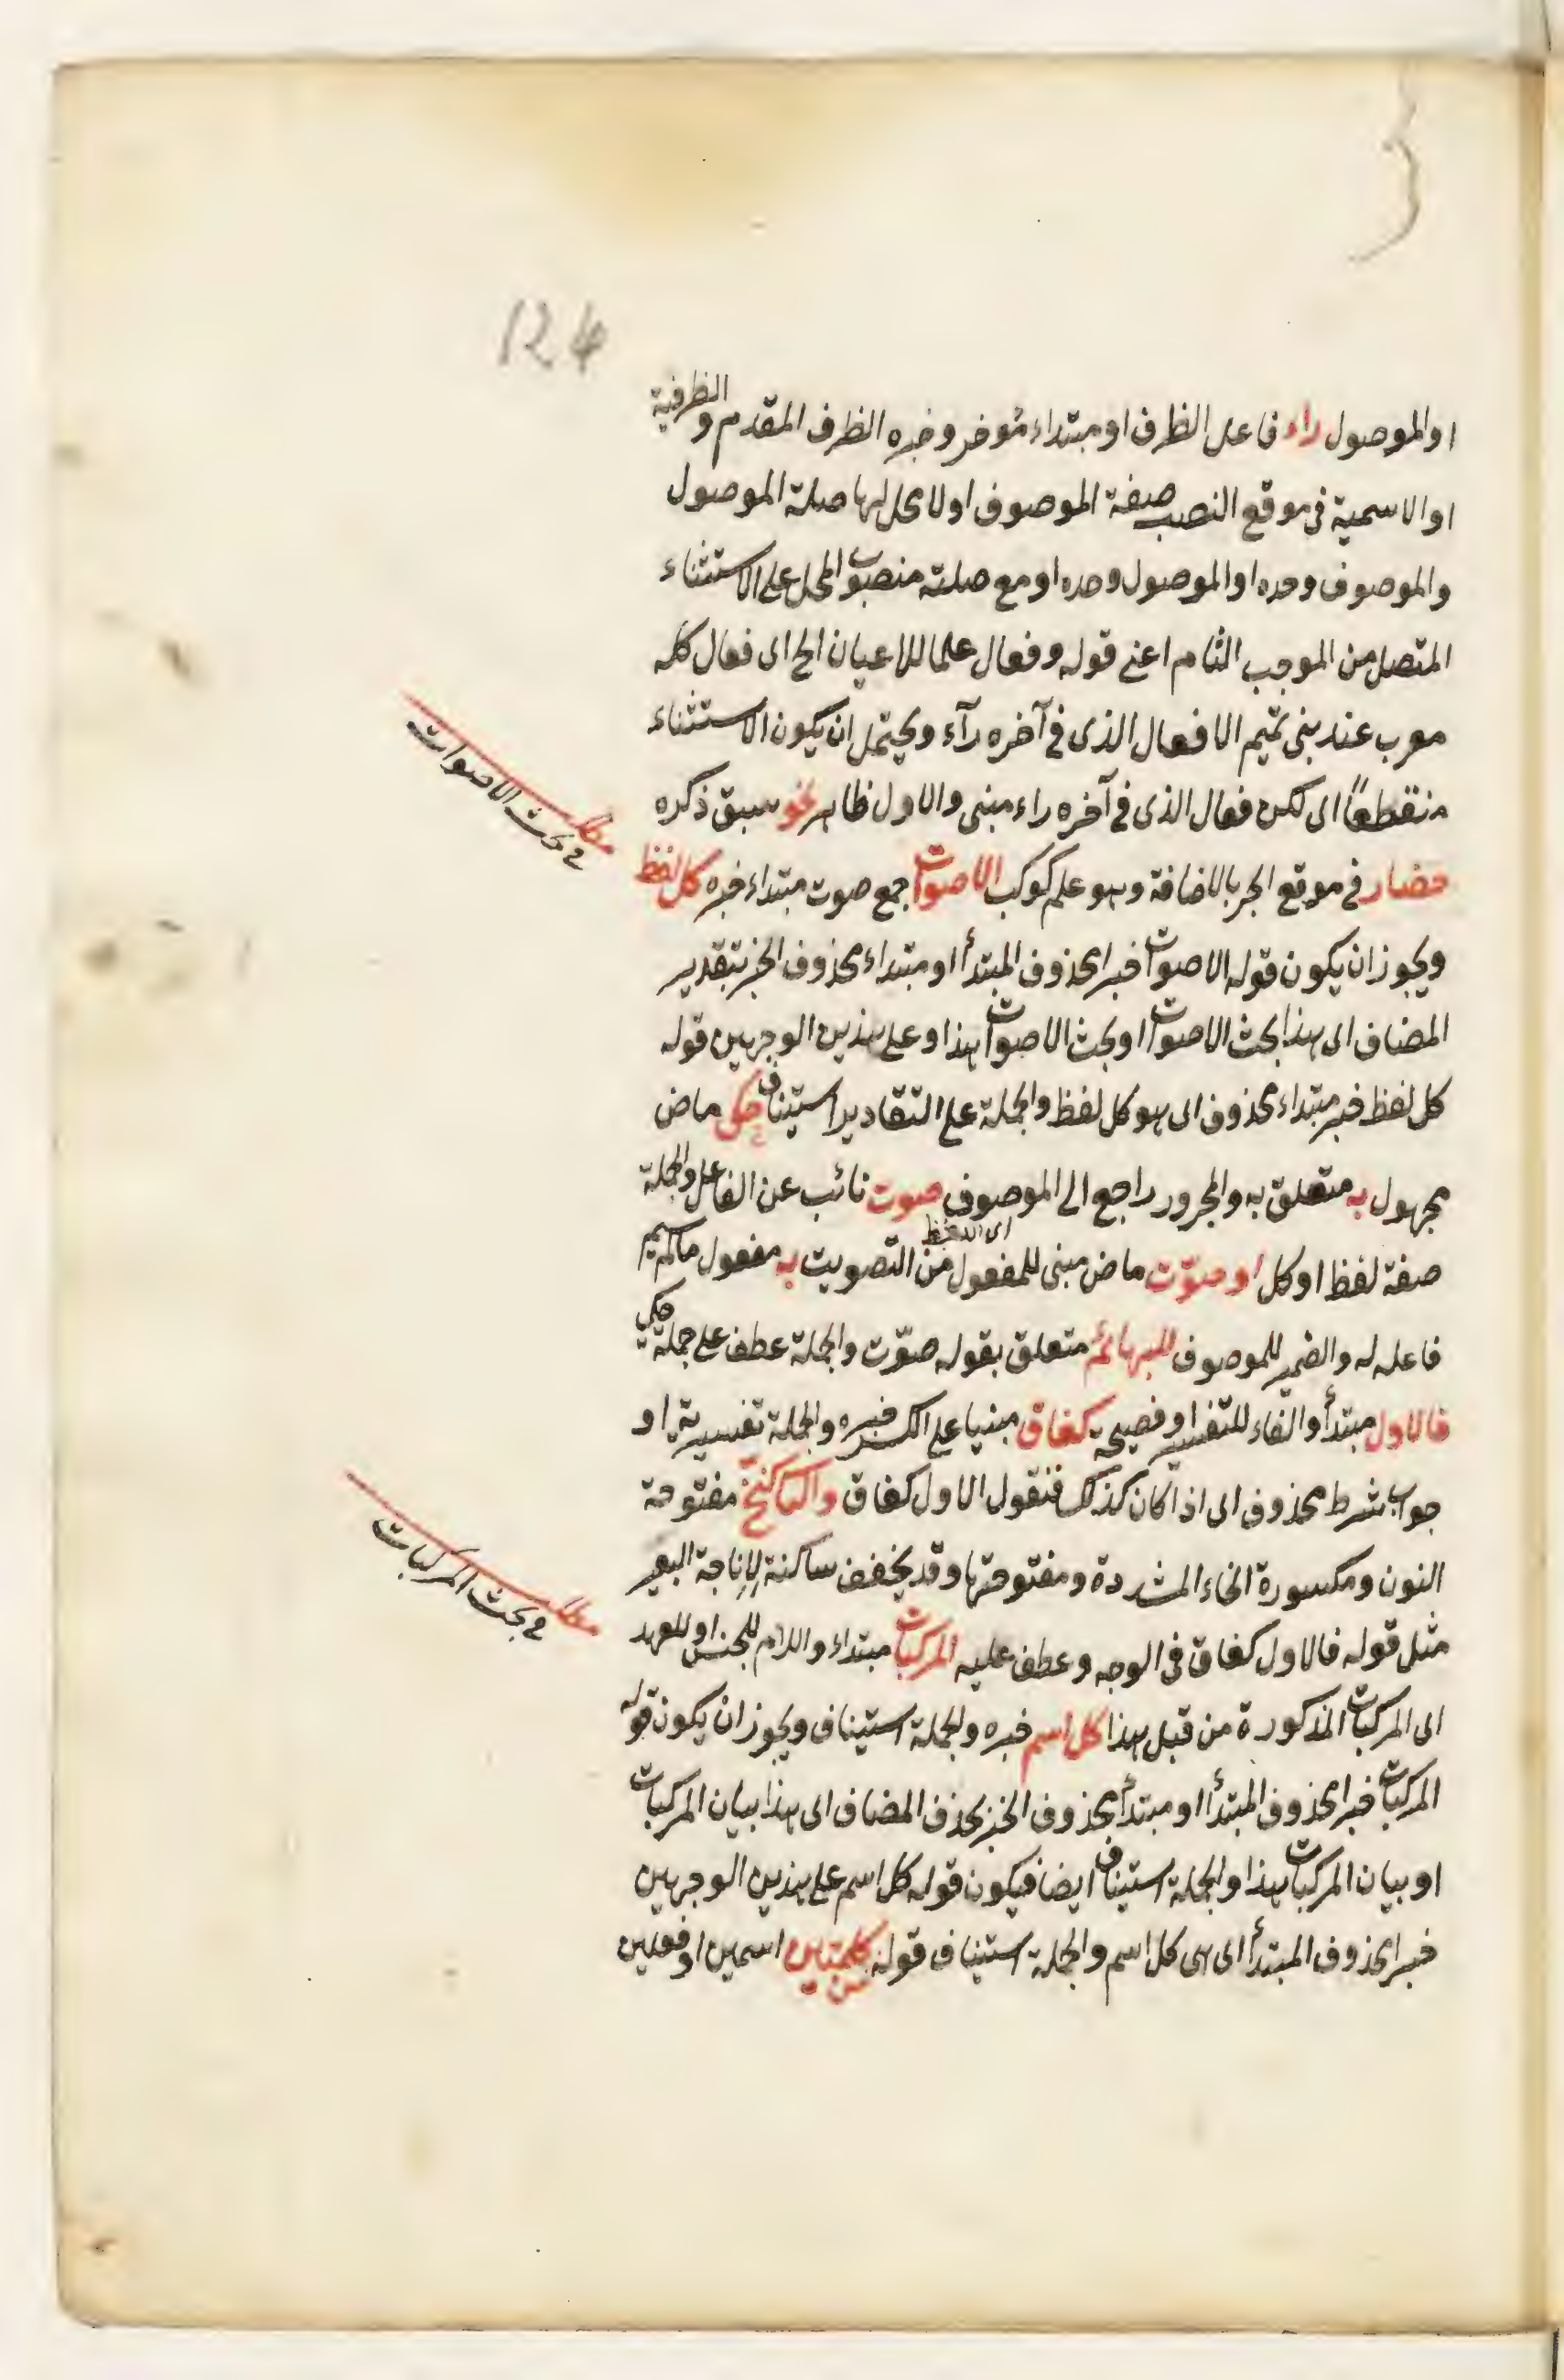 124
او الموصول راء فاعل الظرف او مبتداء مؤخر وخبره الظرف المقدم والظرفية
او الاسمية فى موقع النصب صفة الموصوف اولا محل لها صلة الموصول
والموصوف وحده او الموصول وحده او مع صلته منصوب المحل على الاستثناء
المتصل من الموجب التام اعنى قوله وفعال علما للاعيان الخ اى فعال كله
معرب عند بنى تميم الا فعال الذى فى آخره رآء ويحتمل ان يكون الاستثناء
منقطعاً اى لكن فعال الذى فى آخره راء مبنى والاول ظاهر نحو سبق ذكره
حضار فى موقع الجر بالاضافة وهو علم كوكب الاصوات جمع صوت مبتداء خبره كل لفظ
ويجوز ان يكون قوله الاصوات خبرا محذوف المبتدأ او مبتداء محذوف الخبر بتقدير
المضاف اى هذا بحث الاصوات او بحث الاصوات هذا وعلى هذين الوجهين قوله
كل لفظ خبر مبتداء محذوف اى هو كل لفظ والجملة على التقادير استيناف حكى ماض
مجهول به متعلق به والمجرور راجع الى الموصوف صوت نائب عن الفاعل والجملة
اى اللفظ
صفة لفظ او كل او صوّت ماض مبنى للمفعول من التصويت به مفعول مالم يسم
فاعله له والضمير للموصوف للبهائم متعلق بقوله صوّت والجملة عطف على جملة حكى
فالاول مبتدأ والفاء للتفسير او فصيحة كغاق مبنيا على الكسر خبره والجملة تفسيرية او
جواب شرط محذوف اى اذا كان كذلك فنقول الاول كغاق والثانى كنخ مفتوحة
النون ومكسورة الخاء المشددة ومفتوحتها وقد يخفف ساكنة لاناخة البعير
مثل قوله فالاول كغاق فى الوجه وعطف عليه المركبات مبتداء واللام للجنس او للعهد
اى المركبات المذكورة من قبل هذا كل اسم خبره والجملة استيناف ويجوز ان يكون قوله
المركبات خبرا محذوف المبتدأ او مبتدأ محذوف الخبر بحذف المضاف اى هذا بيان المركبات
او بيان المركبات هذا والجملة استيناف ايضا فيكون قوله كل اسم على هذين الوجهين
خبرا محذوف المبتدأ اى هى كل اسم والجملة استيناف قوله من كلمتين اسمين او فعلين
مطلب
فى بحث الاصوات
مطلب
فى بحث المركبات